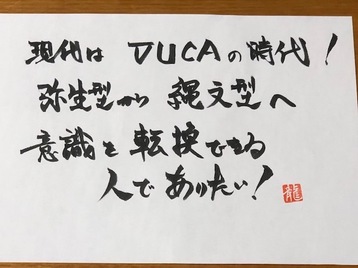 現代は VUCAの時代！
弥生型から 縄文型へ
意識を 転換できる
人で ありたい！